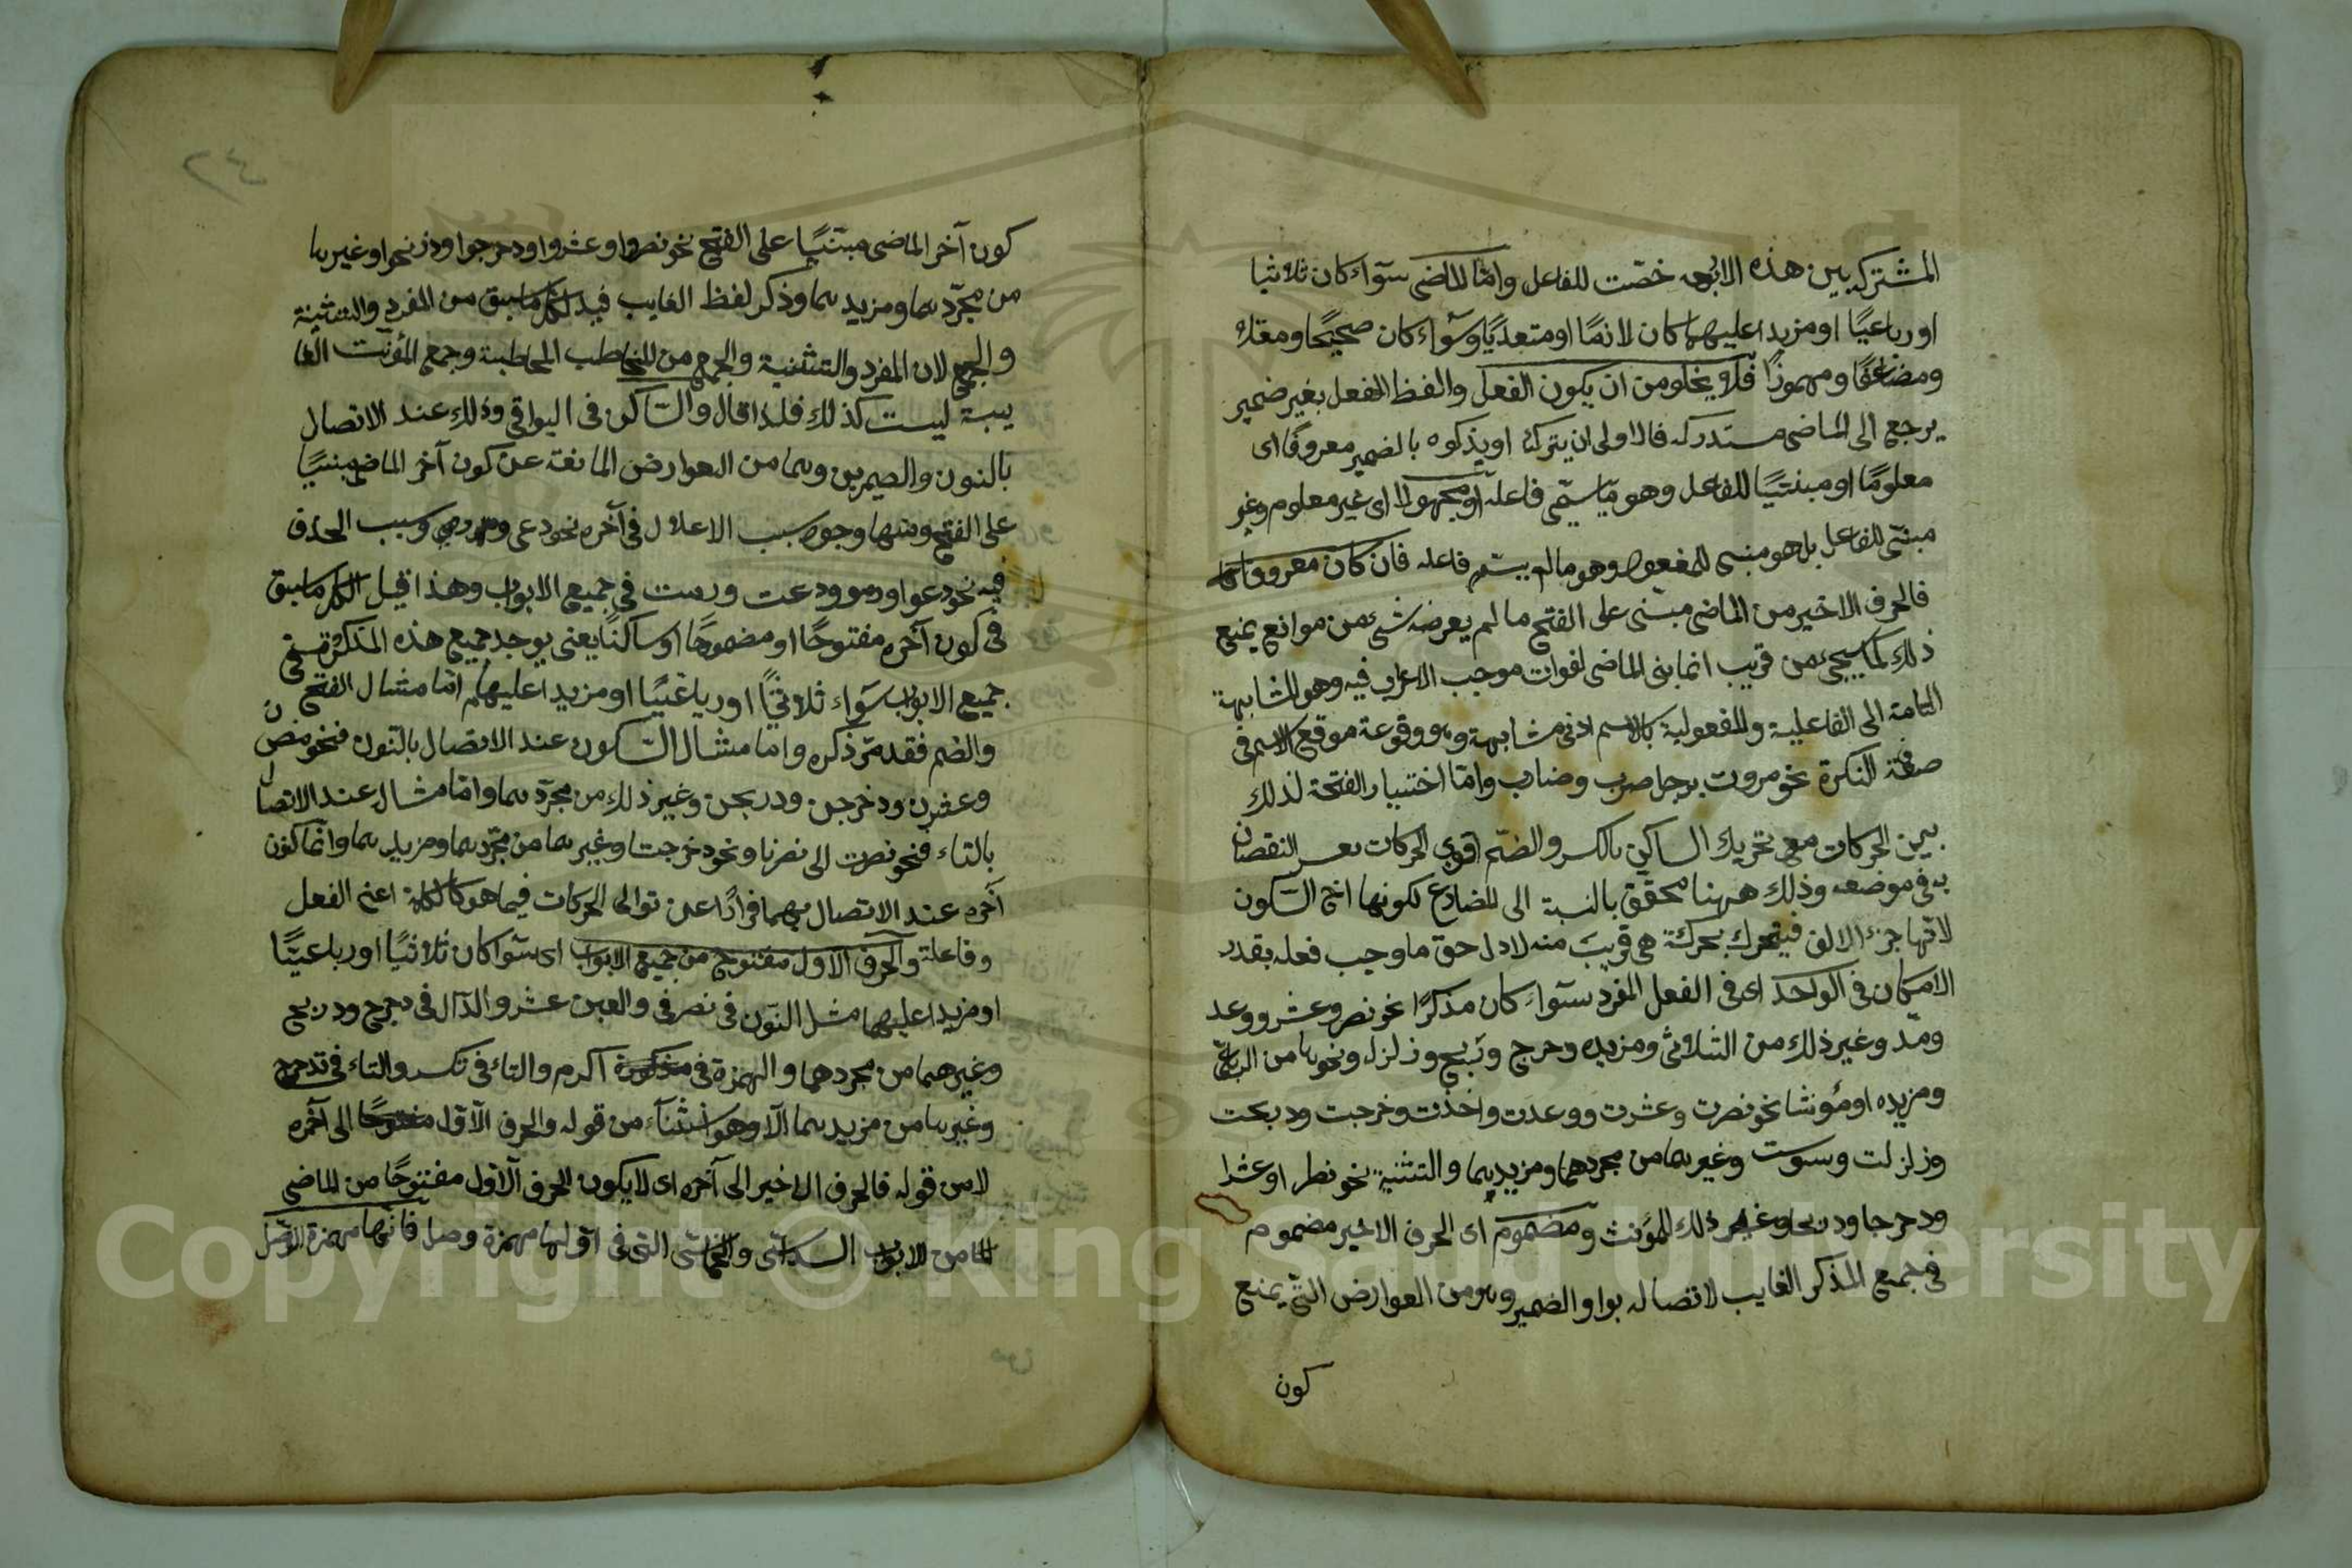 المشترك بين هذه الابنية خصّت للفاعل وامّا الماضى سوآء كان ثلاثيا
او رباعيّا او مزيدا عليهما كان لازمًا او متعدّيًا وسوآء كان صحيحًا ومعتلا
ومضاعفًا ومهموزًا فلا يخلو من ان يكون الفعل والفظ الفعل بغير ضمير
يرجع الى الماضى مستدركه فالاولى ان يتركه او يذكره بالضمير معروفًا اى
معلومًا او مبنيّا للفاعل وهو مّا سمّى فاعله او مجهولا اى غير معلوم وغير
مبنىّ للفاعل بل هو مبنى للمفعول وهو ما لم يسّم فاعله فان كان معروفا
فالحرف الاخير من الماضى مبنى على الفتح ما لم يعرضه شئ من موانع يمنع
ذلك كما سيجئ من قريب انما بنى الماضى لفوات موجب الاعراب فيه وهو المشابهة
التامة الى الفاعلية والمفعولية كالاسم ادنى مشابهة وهو وقوعة موقع الاسم فى
صفة النكرة نحو مررت برجل ضرب وضارب وامّا اختيار الفتحة لذلك
بين الحركات مع تحريك الساكن بالكسر والضّم اقوى الحركات النقصان
به فى موضعه وذلك ههنا محقّق بالنسبة الى المضارع لكونها اخ السّكون
لانّها جزء الالف فيتحرك بحركة هى قريبَ منه لادل حق ما وجب فعله بقدر
الامكان فى الواحد اى فى الفعل المفرد سوآء كان مذكرًا نحو نصر وعشر ووعد
ومدّ وغير ذلك من الثلاثى ومزيده ودحرج ودَبح وزلزل ونحوها من الرباعىّ
ومزيده او مؤنثا نحو نصرت وعشرت ووعدت واخذت وخرجت ودبحت
وزلزلت وسوست وغيرهما من مجردهما ومزيديهما والتثنية نحو نصرا وعشرا
ودحرجا ودربحا وغير ذلك للمؤنث ومضموم اى الحرف الاخير مضموم
فى جميع المذكر الغايب لاتصاله بواو الضمير وهو من العوارض التى يمنع
كون
٢٤
كون آخر الماضى مبنيًا على الفتح نحو نصروا وعشروا ودحرجوا ودربحوا وغيرها
من مجرّدهما ومزيدهما وذكر لفظ الغايب قيد لكل ما سبق من المفرد والتثنية
والجمع لان المفرد والتثنية والجمع من المخاطب المخاطبة وجمع المؤنث الغا
يبة ليست كذلك فلذا قال والسّاكن فى البواقى وذلك عند الاتصال
بالنون والضميرين وهما من العوارض المانعة عن كون آخر الماضى مبنيًا
على الفتح ومنها وجود سبب الاعلال فى آخره نحو دعى ورمى وسبب الحذف
فيه نحو دعوا ورموا ودعت ورمت فى جميع الابواب وهذا قيد لكل ما سبق
فى كون آخره مفتوحًا او مضمومًا او ساكنًا يعنى يوجد جميع هذه المذكورة فى
جميع الابواب سَوآء ثلاثيًّا او رباعيّا او مزيدا عليهما امّا مثال الفتح
والضم فقد مّر ذكره وامّا مثال السّكون عند الاتصال بالنّون فنحو نصرن
وعشرن ودحرجن ودربحن وغير ذلك من مجرّدهما وامّا مثال عند الاتصال
بالتاء فنحو نصرت الى نصرنا ونحو دحرجت وغيرهما من مجّردهما ومزيدهما وانّما كون
آخره عند الاتصال بهما فرارًا عن توالى الحركات فيما هو كالكلمة اعنى الفعل
وفاعلة والحرف الاول مفتوح من جميع الابواب اى سوآ كان ثلاثيًا او رباعيّا
او مزيدا عليهما مثل النّون فى نصر فى والعين عشر والدّال فى دحرج ودربح
وغيرهما من مجردهما والهمزة فى اكرم والتاء فى تكسر والتاء فى تدحرج
وغيرها من مزيدهما الّا وهو استثنآء من قوله والحرف الاّول مفتوحًا الى آخره
لا من قوله فالحرف الاخير الى آخره اى لا يكون الحرف الاّول مفتوحًا من الماضى
الا من الابواب السداسى والخماسى التى فى اوّلها همزة وصل فانّها همزة الوصل
Copyright © King Saud University